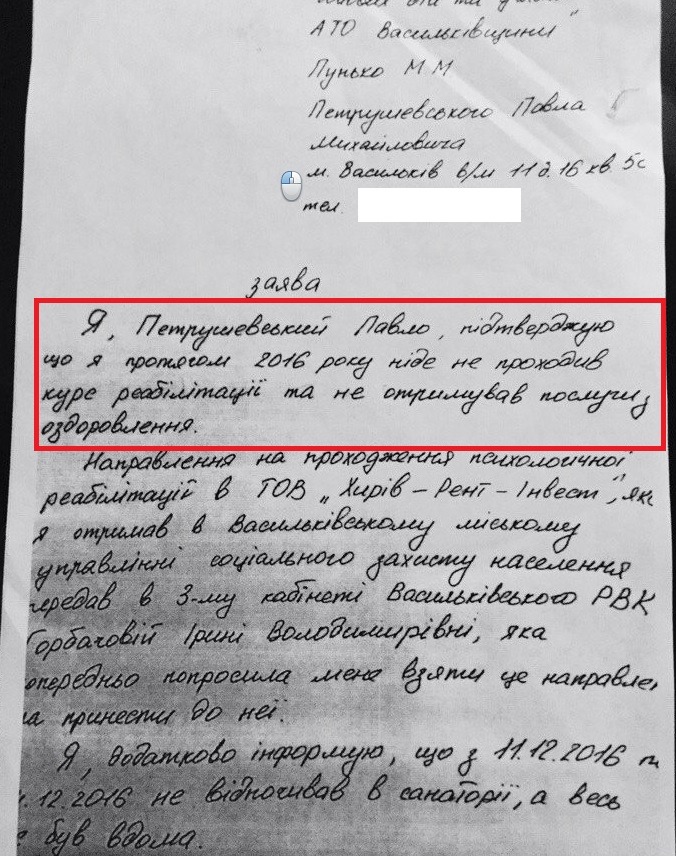 АТО Васильківщини"
Пунько М М
Петрушевського Павла
Михайловича
м. Васильків в/м 11 д.16 кв. 5с
тел.
заява
Я, Петрушевський Павло, підтверджую
що я протягом 2016 року ніде не проходив
курс реабілітації та не отримував послуги з
оздоровлення.
Направлення на проходження психологичної
реабілітації в ТОВ „Хирів – Рент – Інвест", яке
я отримав в Васильківському міському
управлінні соціального захисту населення
передав в 3-му кабінеті Васильківського РВК
Горбачовій Ірині Володимирівні, яка
опередньо попросила мене взяти це направлен
та принести до неї.
Я, додатково інформую, що з 11.12.2016 п
.12.2016 не відпочивав в санаторії, а весь
був вдома.